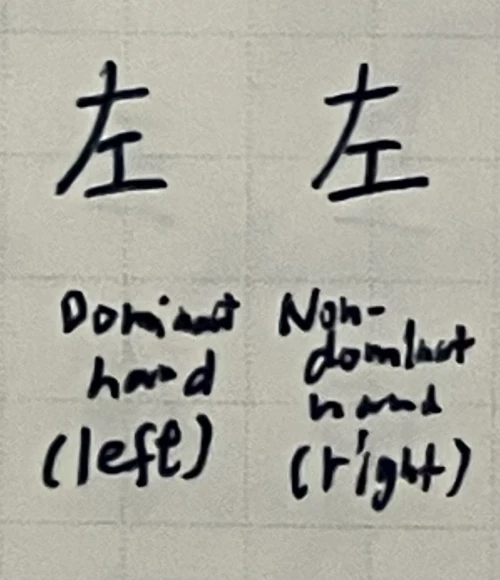 左 左
Dominant
hand
(left)
Non-
dominant
hand
(right)